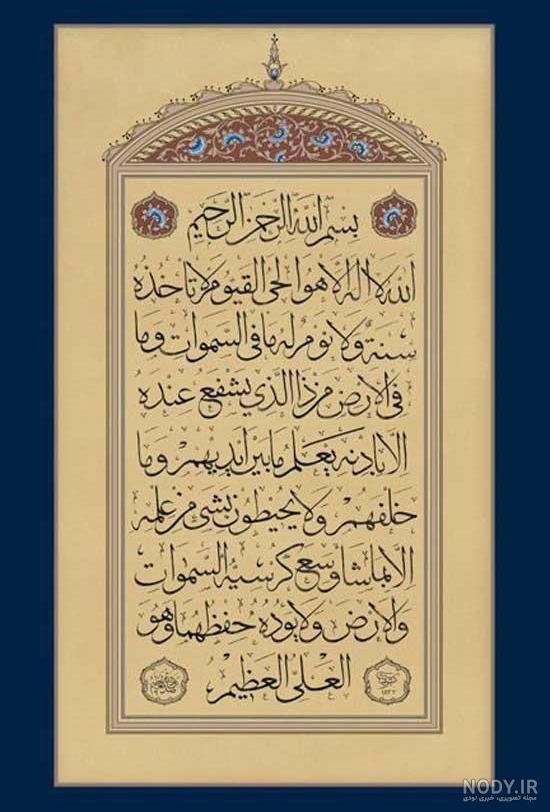 بسم الله الرحمن الرحيم
الله لا اله الا هو الحى القيوم لا تاخذه
سنة ولا نوم له ما فى السموات وما
فى الارض من ذا الذى يشفع عنده
الا باذنه يعلم ما بين ايديهم وما
خلفهم ولا يحيطون بشى من علمه
الا بما شا وسع كرسيه السموات
والارض ولا يوده حفظهما وهو
العلى العظيم
NODY.IR
مجله تصویری، خبری نودی